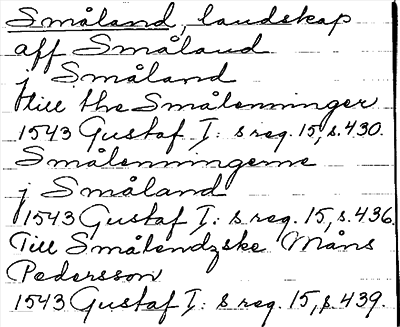 Småland, landskap
aff Småland
j Småland
till the Smålenninger
1543 Gustaf I: s reg. 15, s. 430.
Smålenningerne
j Småland
1543 Gustaf I: s reg. 15, s. 436.
Till Smålendzske Måns
Pedersson
1543 Gustaf I: s reg. 15, s. 439.